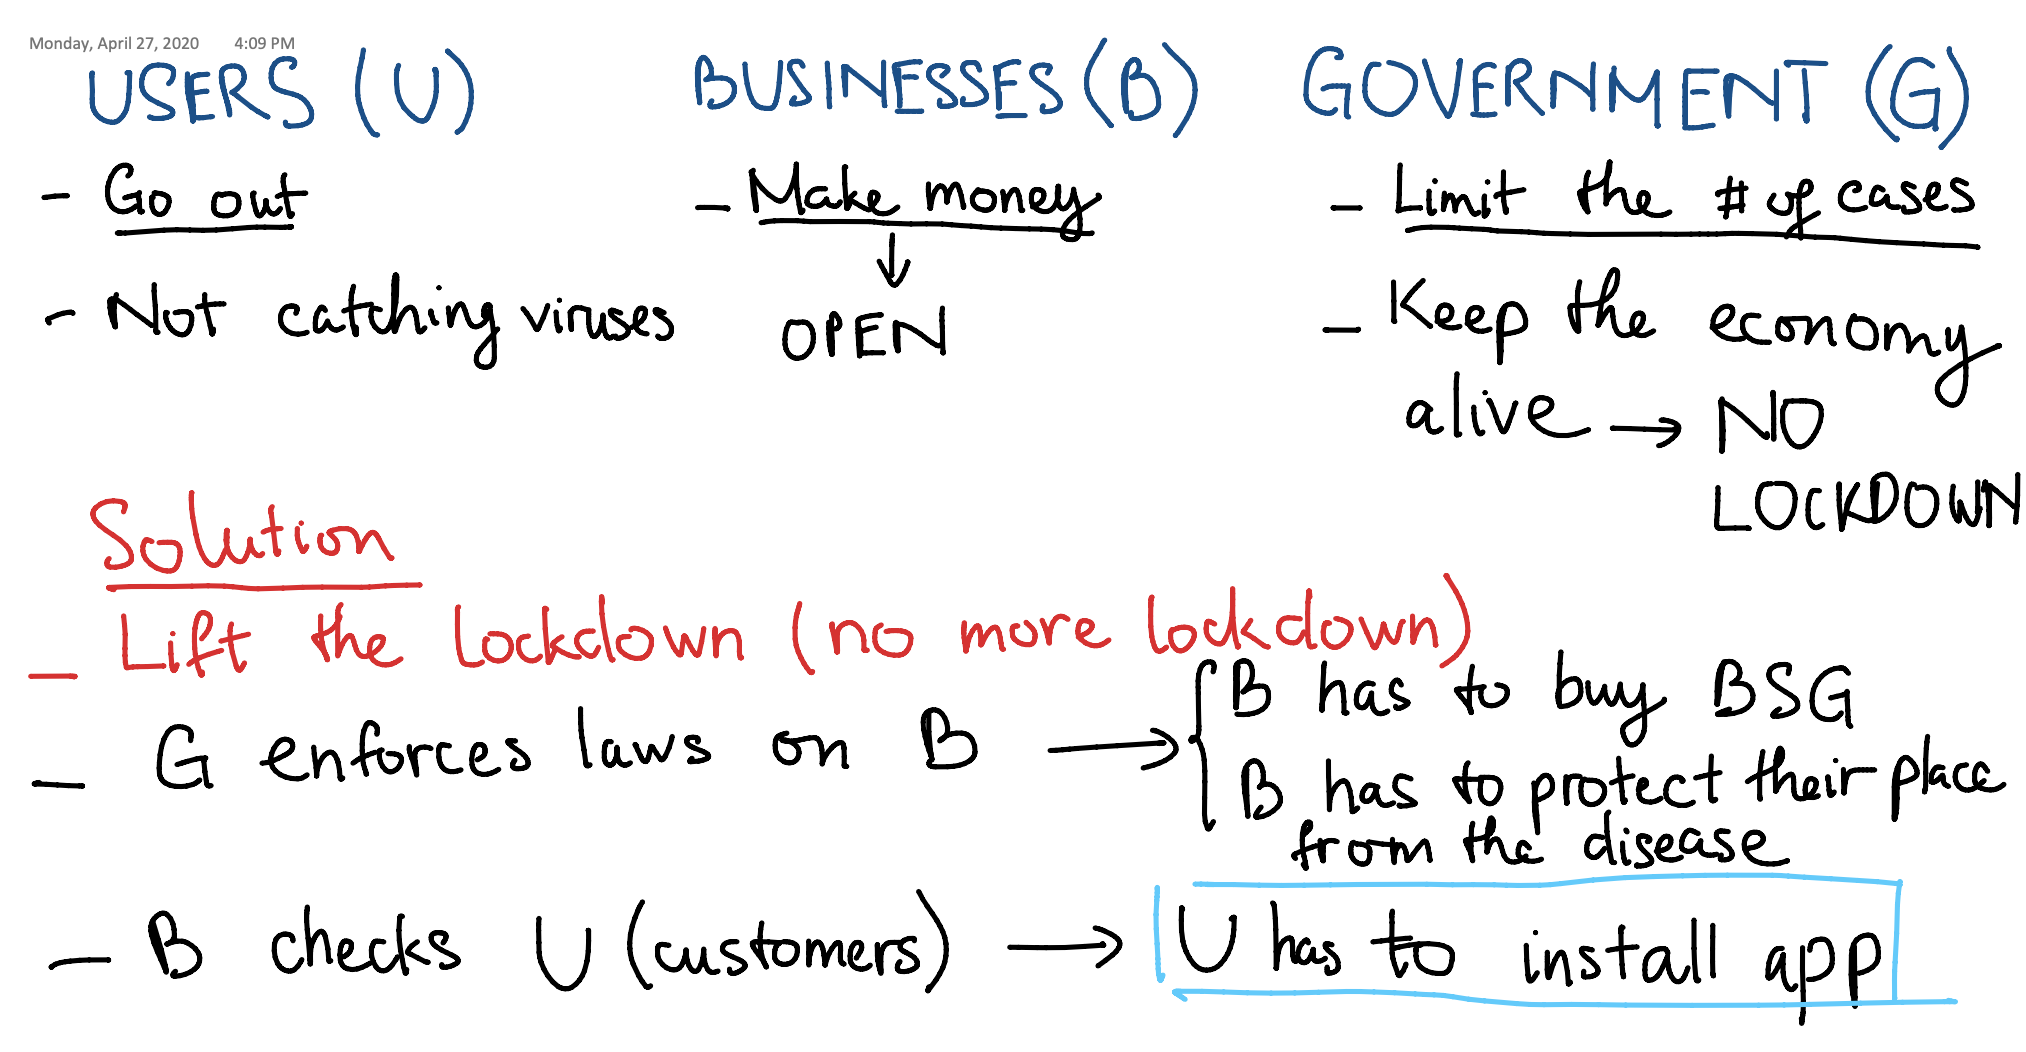 Monday, April 27, 2020 4:09 PM
USERS (U)
- Go out
- Not catching viruses
BUSINESSES (B)
- Make money
↓
OPEN
GOVERNMENT (G)
- Limit the # of cases
- Keep the economy
alive → NO
LOCKDOWN
Solution
- Lift the lockdown (no more lockdown)
- G enforces laws on B → { B has to buy BSG
B has to protect their place
from the disease
- B checks U (customers) → U has to install app